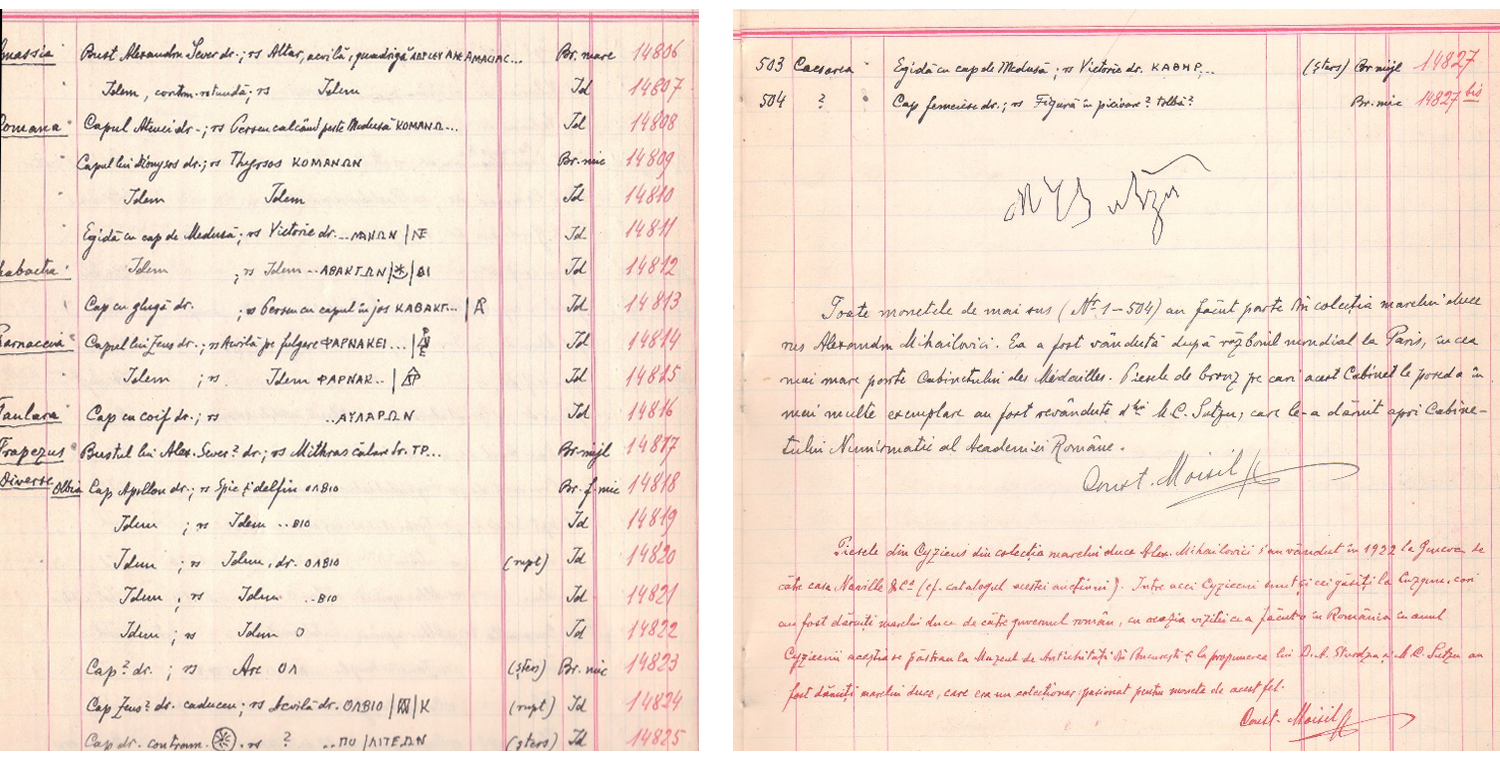 Bust Alexandru Sever dr.; rs Altar, acvilă, quadrigă ΑΔΡ ΣΕΥ ΑΝΤ ΑΜΑCΙΑC... Br. mare 14806
" Idem, contm. rotundă; rs Idem Id 14807
Comana Capul Atenei dr.; rs Perseu calcând peste Medusă ΚΟΜΑΝΩ... Id 14808
" Capul lui Dionysos dr.; rs Thyrsos ΚΟΜΑΝΩΝ Br. mic 14809
" Idem Idem Id 14810
" Egidă cu cap de Medusă; rs Victorie dr. ...ΜΑΝΩΝ Id 14811
Idem ; rs Idem ..ΑΒΑΚΤΩΝ | ΘΙ Id 14812
" Cap cu glugă dr. ; rs Perseu cu capul în jos ΚΑΒΑΚΤ... Id 14813
Capul lui Zeus dr.; rs Acvilă pe fulgere ΦΑΡΝΑΚΕΙ... Id 14814
" Idem ; rs Idem ΦΑΡΝΑΚ.. Id 14815
Taulara Cap cu coif dr.; rs ..ΑΥΛΑΡΩΝ Id 14816
Trapezus Bustul lui Alex. Sever? dr.; rs Mithras călare dr. ΤΡ... Br. mijl 14817
Diverse Olbia Cap Apollon dr.; rs Spic și delfin ΟΛΒΙΟ Br. f. mic 14818
Idem ; rs Idem ..ΒΙΟ Id 14819
Idem ; rs Idem, dr. ΟΛΒΙΟ (rupt) Id 14820
Idem ; rs Idem ..ΒΙΟ Id 14821
Idem ; rs Idem Ο Id 14822
Cap? dr. ; rs Arc ΟΛ (șters) Br. mic 14823
Cap Zeus? dr. caduceu; rs Acvilă dr. ΟΛΒΙΟ | Κ (rupt) Id 14824
Cap dr. contram. rs ? ..ΠΟ / ΛΙΤΕΩΝ (șters) Id 14825
503 Caesarea " Egidă cu cap de Medusă; rs Victorie dr. ΚΑΘΗΡ... (șters) Br mijl 14827
504 ? " Cap femeiesc dr.; rs Figură în picioare? tolbă? Br. mic 14827 bis
Toate monetele de mai sus (Nr. 1-504) au făcut parte din colecția marelui duce
rus Alexandru Mihailovici. Ea a fost vândută după războiul mondial la Paris, în cea
mai mare parte Cabinetului des Médailles. Piesele de bronz pe cari acest Cabinet le poseda în
mai multe exemplare au fost revândute d-lui M.C. Sutzu, care le-a dăruit apoi Cabine-
tului Numismatic al Academiei Române.
Const. Moisil
Piesele din Cyzicus din colecția marelui duce Alex. Mihailovici s'au vândut în 1922 la Geneva de
către casa Naville & Cie (cf. catalogul acestei aucțiuni). Între acei Cyziceni sunt și cei găsiți la Cuzgun, cari
au fost dăruiți marelui duce de către guvernul român, cu ocazia vizitei ce a făcut-o în România în anul
Cyzicenii aceștia se păstrau la Muzeul de Antichități din București și la propunerea lui D.A. Sturdza și M.C. Sutzu au
fost dăruiți marelui duce, care era un colecționar pasionat pentru monete de acest fel.
Const. Moisil